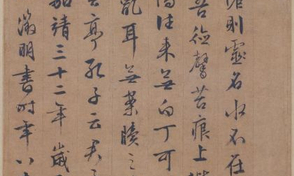 則靈名水不在
吾德馨苔痕上階
往來無白丁可
亂耳無案牘之
亭孔子云
嘉靖三十二年歲
徵明書時年八